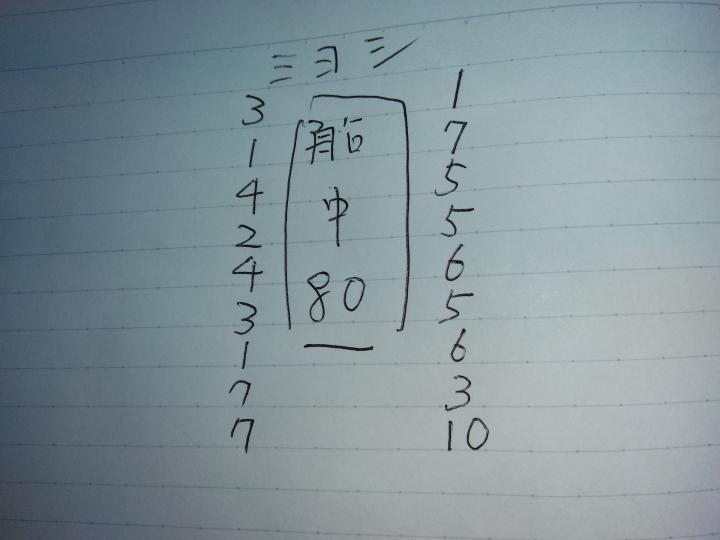 ミヨシ
3
1
4
2
4
3
1
7
7
船
中
80
1
7
5
5
6
5
6
3
10